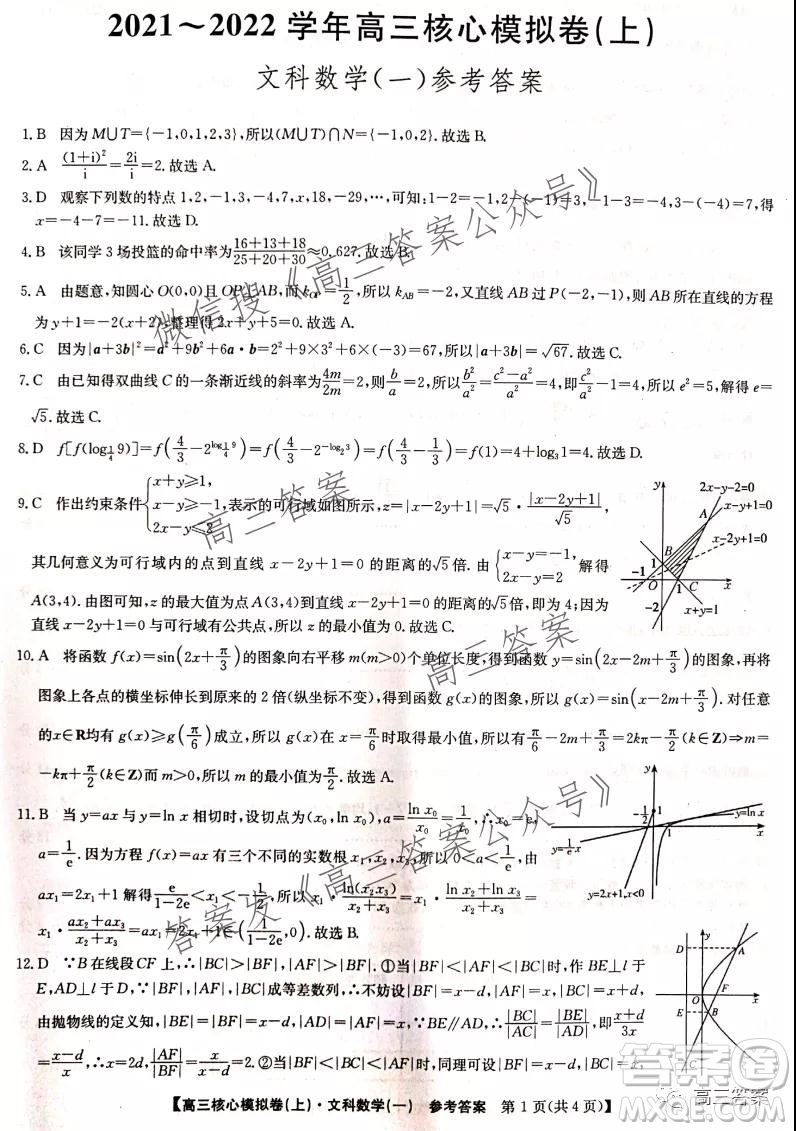 2021～2022 学年高三核心模拟卷(上)
文科数学(一)参考答案
1. B 因为M∪T={-1,0,1,2,3},所以(M∪T)∩N={-1,0,2}.故选 B.
2. A (1+i)²/i=2i/i=2.故选 A.
3. D 观察下列数的特点 1,2,-1,3,-4,7,x,18,-29,…,可知:1-2=-1,2-(-1)=3,-1-3=-4,3-(-4)=7,得
x=-4-7=-11.故选 D.
4. B 该同学 3 场投篮的命中率为(16+13+18)/(25+20+30)≈0.627.故选 B.
5. A 由题意,知圆心 O(0,0)且 OP⊥AB,而 k_OP=1/2,所以 k_AB=-2,又直线 AB 过 P(-2,-1),则 AB 所在直线的方程
为 y+1=-2(x+2),整理得 2x+y+5=0.故选 A.
6. C 因为|a+3b|²=a²+9b²+6a·b=2²+9×3²+6×(-3)=67,所以|a+3b|=√67.故选 C.
7. C 由已知得双曲线 C 的一条渐近线的斜率为4m/2m=2,则b/a=2,所以b²/a²=(c²-a²)/a²=4,即c²/a²-1=4,所以 e²=5,解得 e=
√5.故选 C.
8. D f[f(log_(1/4)9)]=f(4/3-2^(log_(1/4)9))=f(4/3-2^(-log₂3))=f(4/3-1/3)=f(1)=4+log₃1=4.故选 D.
9. C 作出约束条件{x+y≥1, x-y≥-1, 2x-y≤2 表示的可行域如图所示,z=|x-2y+1|=√5·|x-2y+1|/√5,
其几何意义为可行域内的点到直线 x-2y+1=0 的距离的√5倍. 由{x-y=-1, 2x-y=2 解得
A(3,4).由图可知,z 的最大值为点 A(3,4)到直线 x-2y+1=0 的距离的√5倍,即为 4;因为
直线 x-2y+1=0 与可行域有公共点,所以 z 的最小值为 0.故选 C.
y 2x-y-2=0
x-y+1=0
A
x-2y+1=0
B 1
-1 O 1 C x
-2
x+y=1
10. A 将函数 f(x)=sin(2x+π/3)的图象向右平移 m(m>0)个单位长度,得到函数 y=sin(2x-2m+π/3)的图象,再将
图象上各点的横坐标伸长到原来的 2 倍(纵坐标不变),得到函数 g(x)的图象,所以 g(x)=sin(x-2m+π/3). 对任意
的x∈R均有 g(x)≥g(π/6)成立,所以 g(x)在 x=π/6时取得最小值,所以有π/6-2m+π/3=2kπ-π/2(k∈Z)⇒m=
-kπ+π/2(k∈Z)而 m>0,所以 m 的最小值为π/2.故选 A.
11. B 当 y=ax 与 y=ln x 相切时,设切点为(x₀,ln x₀),a=ln x₀/x₀=1/x₀,∴x₀=e,
a=1/e. 因为方程 f(x)=ax 有三个不同的实数根 x₁,x₂,x₃,所以 0<a<1/e,由
ax₁=2x₁+1 解得e/(1-2e)<x₁<-1/2,所以 x₁·ln(x₂x₃)/(x₂+x₃)=x₁·(ln x₂+ln x₃)/(x₂+x₃)=
x₁·(ax₂+ax₃)/(x₂+x₃)=ax₁=2x₁+1∈(1/(1-2e),0).故选 B.
y
-1/2 1 y=ln x
y=1/e x 1 x
y=2x+1,x<0
12. D ∵B 在线段 CF 上,∴|BC|>|BF|,∴①当|BF|<|AF|<|BC|时,作 BE⊥l 于
E,AD⊥l 于 D,∵|BF|,|AF|,|BC|成等差数列,∴不妨设|BF|=x-d,|AF|=x,|BC|=x+d,
由抛物线的定义知,|BE|=|BF|=x-d,|AD|=|AF|=x,∵BE∥AD,∴|BC|/|AC|=|BE|/|AD|,即(x+d)/3x
=(x-d)/x,∴x=2d,|AF|/|BF|=x/(x-d)=2.②当|BF|<|BC|<|AF|时,同理可设|BF|=x-d,|BC|=x,
y
D A
O F x
E B
C
【高三核心模拟卷(上)·文科数学(一) 参考答案 第 1 页(共 4 页)】
微信搜《高三答案公众号》
高三答案
高三答案
答案发《高三答案公众号》
答案圈
MXQE.COM
高三答案